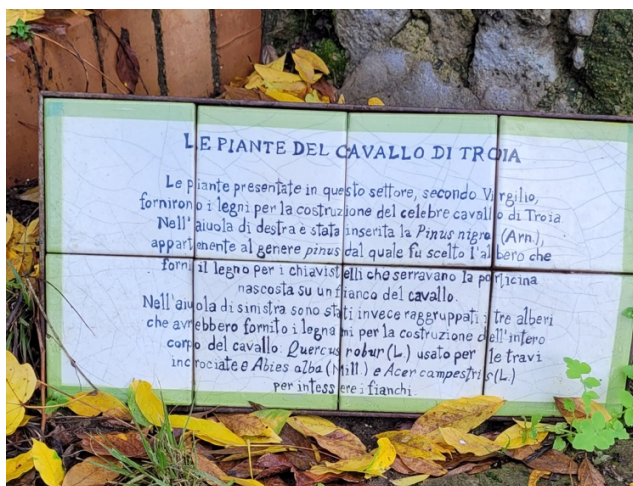 LE PIANTE DEL CAVALLO DI TROIA
Le piante presentate in questo settore, secondo Virgilio,
fornirono i legni per la costruzione del celebre cavallo di Troia
Nell'aiuola di destra è stata inserita la Pinus nigra (Arn.),
appartenente al genere pinus dal quale fu scelto l'albero che
fornì il legno per i chiavistelli che serravano la porticina
nascosta su un fianco del cavallo.
Nell'aiuola di sinistra sono stati invece raggruppati i tre alberi
che avrebbero fornito i legnami per la costruzione dell'intero
corpo del cavallo: Quercus robur (L.) usato per le travi
incrociate e Abies alba (Mill.) e Acer campestris (L.)
per intessere i fianchi.